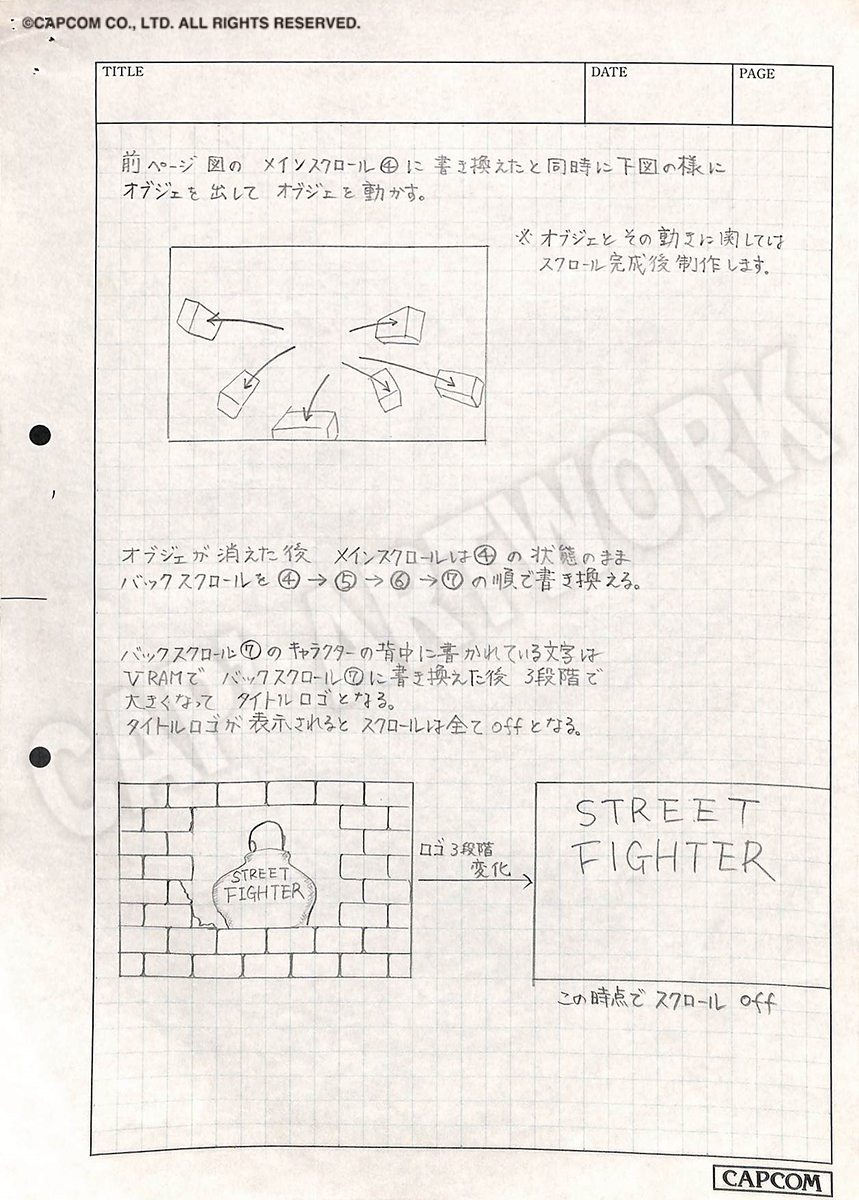 ©CAPCOM CO., LTD. ALL RIGHTS RESERVED.
TITLE
DATE
PAGE
前ページ 図の メインスクロール④に 書き換えたと同時に下図の様に
オブジェを 出して オブジェを 動かす。
※ オブジェと その動きに関しては
スクロール完成後 制作します。
オブジェが 消えた後 メインスクロールは④の状態のまま
バックスクロールを ④→⑤→⑥→⑦の順で書き換える。
バックスクロール⑦のキャラクターの背中に書かれている文字は
VRAMで バックスクロール⑦に書き換えた後 3段階で
大きくなって タイトルロゴとなる。
タイトルロゴが 表示されると スクロールは全て offとなる。
STREET
FIGHTER
ロゴ 3段階
変化
STREET
FIGHTER
この時点で スクロール off
CAP ARTWORK
CAPCOM